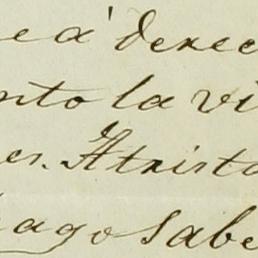 e a' derec
nto la vi
es. Atrista
hago sabe